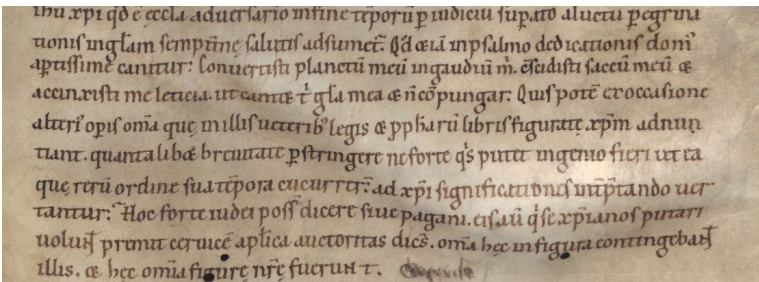 ihu xp̄i qd̄ ē eccła adversario in fine tēporū ꝑ iudiciū suꝑato a luctu ꝑegrina
tionis in gl̄am sempit̄nę salutis adsumet᷑. Qd̄ & iā in psalmo dedicationis dom᷒
aptissime canitur: Convertisti planctū meū in gaudiū m̄. c̄scidisti saccū meū &
accinxisti me leticia. ut cant& t̍ gl̄a mea & n̄ cōpungar: Quis potē ex occasione
alteri᷒ opis om̄a quę in illis veterib᷒ legis & ꝓph̄arū libris figurate xp̄m adnun
tiant. quantalib& brevitate ꝑstringere ne forte q̍s putet ingenio fieri ut ea
que rerū ordine sua tēpora cucurrer᷑. ad xp̄i significationes int̄ptando ver
tantur: Hoc forte iudei poss̄ dicere sive pagani. eis aū q̍ se xp̄ianos putari
volunt premit cervicē aplīca auctoritas dic̄s. om̄a hęc in figura contingebant
illis. & hęc om̄ia figurę nr̄ę fuerunt.